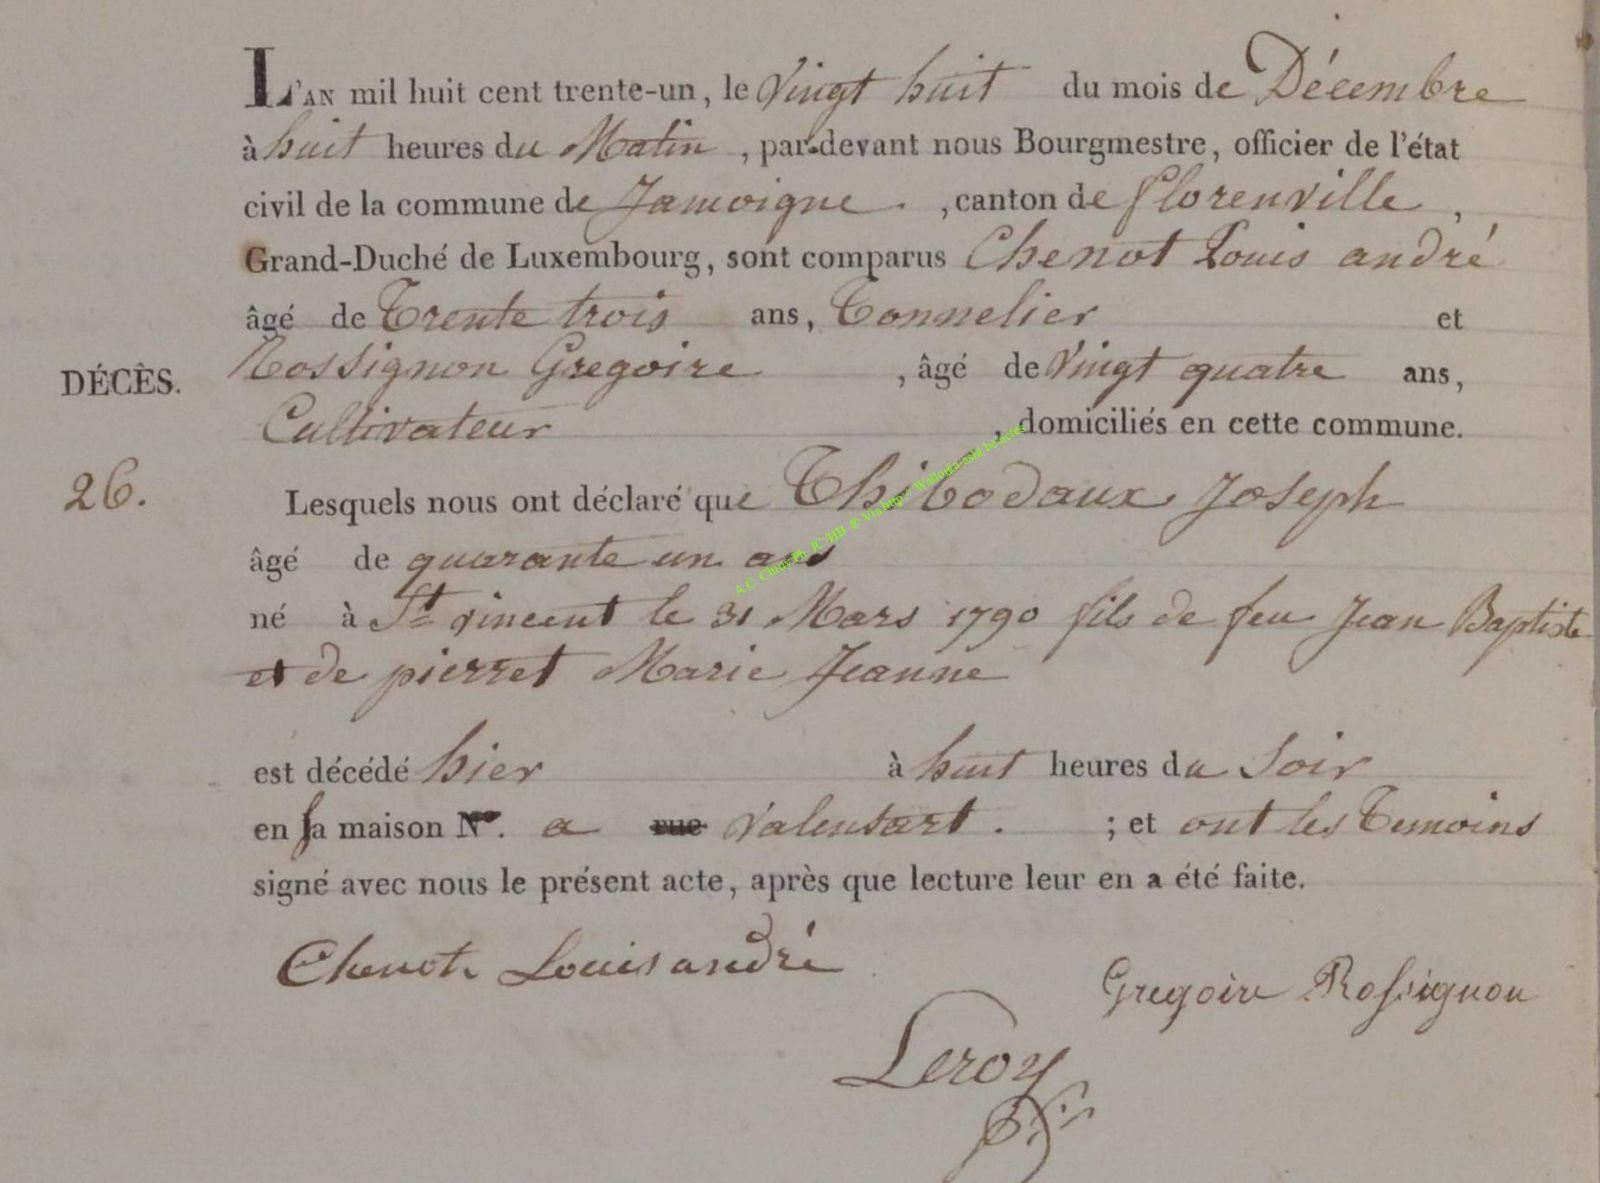 L'AN mil huit cent trente-un, le Vingt huit du mois de Décembre
à huit heures du Matin, par-devant nous Bourgmestre, officier de l'état
civil de la commune de Jamoigne. , canton de florenville,
Grand-Duché de Luxembourg, sont comparus Chenot Louis andré
âgé de Trente trois ans, Tonnelier et
Rossignon Gregoire, âgé de Vingt quatre ans,
DÉCÈS.
Cultivateur, domiciliés en cette commune.
26.
Lesquels nous ont déclaré que Thibodaux Joseph
âgé de quarante un ans
né à St vincent le 31 Mars 1790 fils de feu Jean Baptiste
et de pierret Marie Jeanne
est décédé hier à huit heures du Soir
en sa maison N°. a rue Valensart. ; et ont les Temoins
signé avec nous le présent acte, après que lecture leur en a été faite.
Chenot Louis andré
Gregoire Rossignon
Leroy